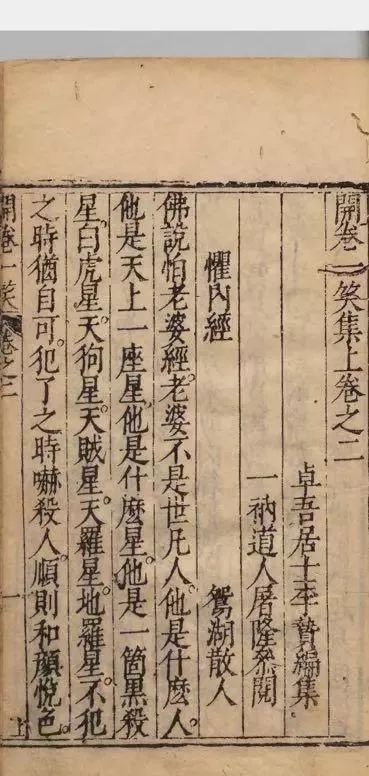 開卷一笑集上卷之二
卓吾居士李贄編集
一衲道人屠隆叅閱
懼內經 鴛湖散人
佛說怕老婆經。老婆不是世凡人。他是什麽人。
他是天上一座星。他是什麽星。他是一箇黑殺
星。白虎星。天狗星。天賊星。天羅星。地羅星。不犯
之時猶自可。犯了之時嚇殺人。順則和顏悅色。
開卷一笑 卷之二
一
上